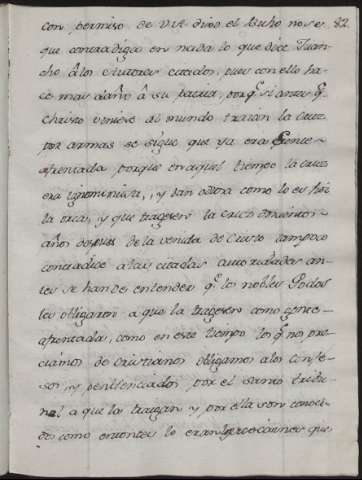 con permiso de Vm. dijo el Licdo. no se 82
que contradiga en nada lo que dice Juan
cho â los Autores citados, pues con ello ha-
ce mas daño â su patria, porq. si antes q.
Christo veniese al mundo traían la Cruz
por armas se sigue que ya era Gente
afrentada, porque en aquel tiempo la Cruz
era ignominiosa, y tan odiosa como lo es hoi
la orca, y que tragesen la Cruz trescientos
años despues de la venida de Cristo tampoco
contradice a las citadas autoridades an-
tes se han de entender qe. los nobles Godos
les obligaron a que la tragesen como gente
afrentada, como en este tiempo los q. no pre-
ciamos de Cristianos obligamos a los confe-
sos, y penitenciados por el santo tribu-
nal a que la traigan y por ella son conoci-
dos como entonces lo eran los que